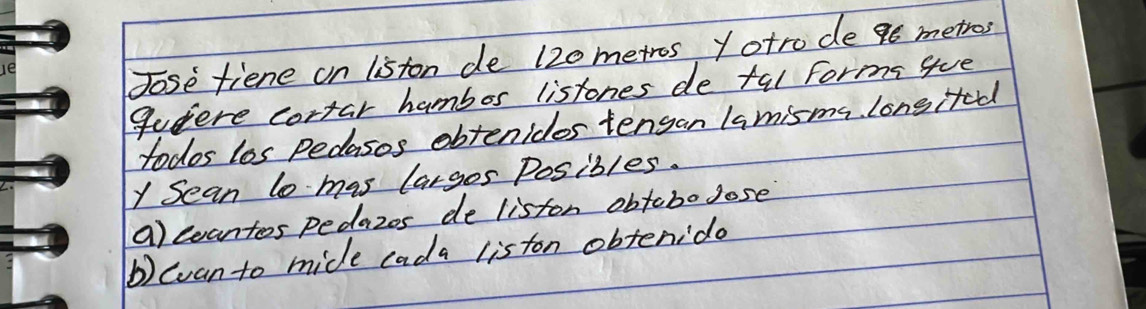 José tiene un liston de 120 metros y otro de 96 metros
quiere cortar hambos listones de tal forma que
todos los pedasos obtenidos tengan la misma longitud
y sean lo mas largos posibles.
a) cuantos pedazos de liston obtubo Jose
b) cuanto mide cada liston obtenido